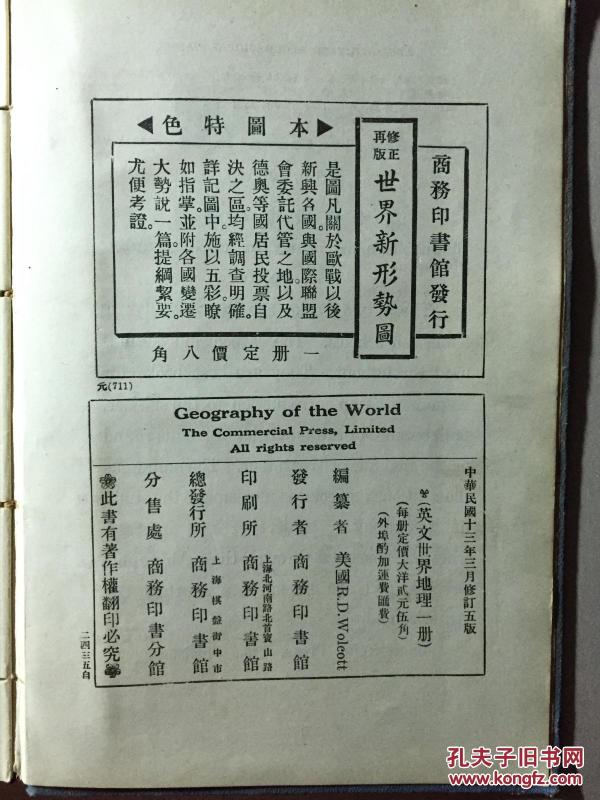 商務印書館發行
修正
再版
世界新形勢圖
▶本圖特色◀
是圖凡關於歐戰以後
新興各國。與國際聯盟
會委託代管之地。以及
德奧等國居民投票自
決之區。均經調查明確。
詳記圖中。施以五彩。瞭
如指掌。並附各國變遷
大勢說一篇。提綱絜要。
尤便考證。
一册定價八角
元(711)
Geography of the World
The Commercial Press, Limited
All rights reserved
中華民國十三年三月修訂五版
(英文世界地理一册)
(每册定價大洋貳元伍角)
(外埠酌加運費匯費)
編纂者 美國R.D.Wolcott
發行者 商務印書館
印刷所 上海北河南路北首寶山路 商務印書館
總發行所 上海棋盤街中市 商務印書館
分售處 商務印書分館
此書有著作權翻印必究
二四三五自
孔夫子旧书网
www.kongfz.com